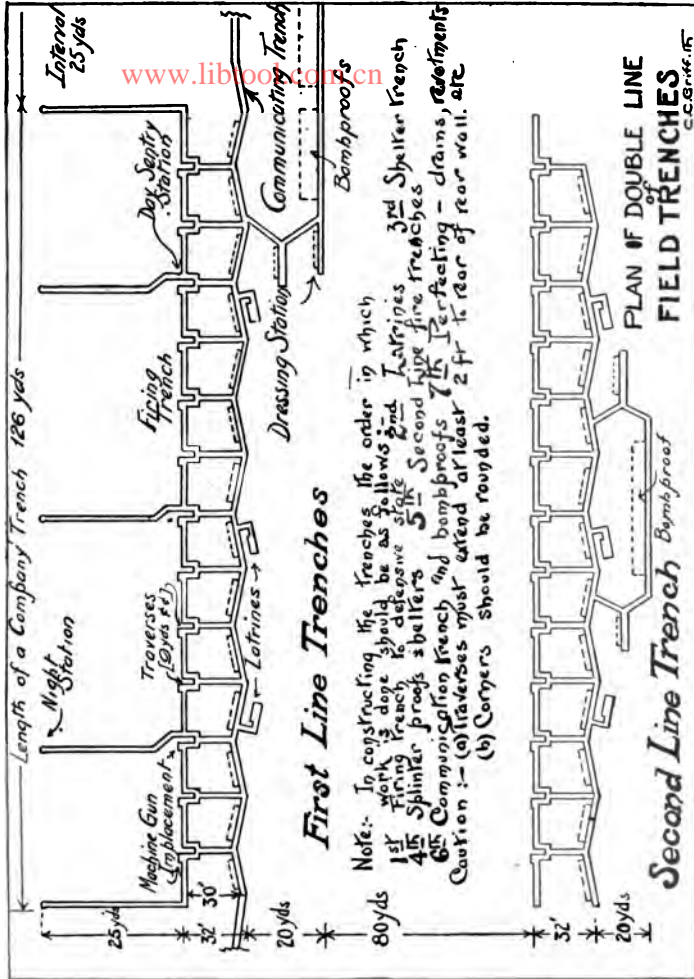 www.libtool.com.cn
Length of a Company Trench 126 yds
Interval
25 yds
Night
Station
Day Sentry
Station
Machine Gun
Emplacement
Traverses
Firing
Trench
25 yds
30'
32'
Latrines
Dressing Station
Communicating Trench
Bombproofs
20 yds
First Line Trenches
80 yds
Note:- In constructing the trenches the order in which
work is done should be as follows:-
1st Firing trench to defensive state 2nd Latrines 3rd Shelter trench
4th Splinter proofs shelters 5th Second Line fire trenches
6th Communication trench and bombproofs 7th Perfecting - drains, revetments
etc
Caution:- (a) Traverses must extend at least 2 ft to rear of rear wall.
(b) Corners should be rounded.
32'
20 yds
Second Line Trench
Bombproof
PLAN OF DOUBLE LINE
of
FIELD TRENCHES
C.C. Griffith